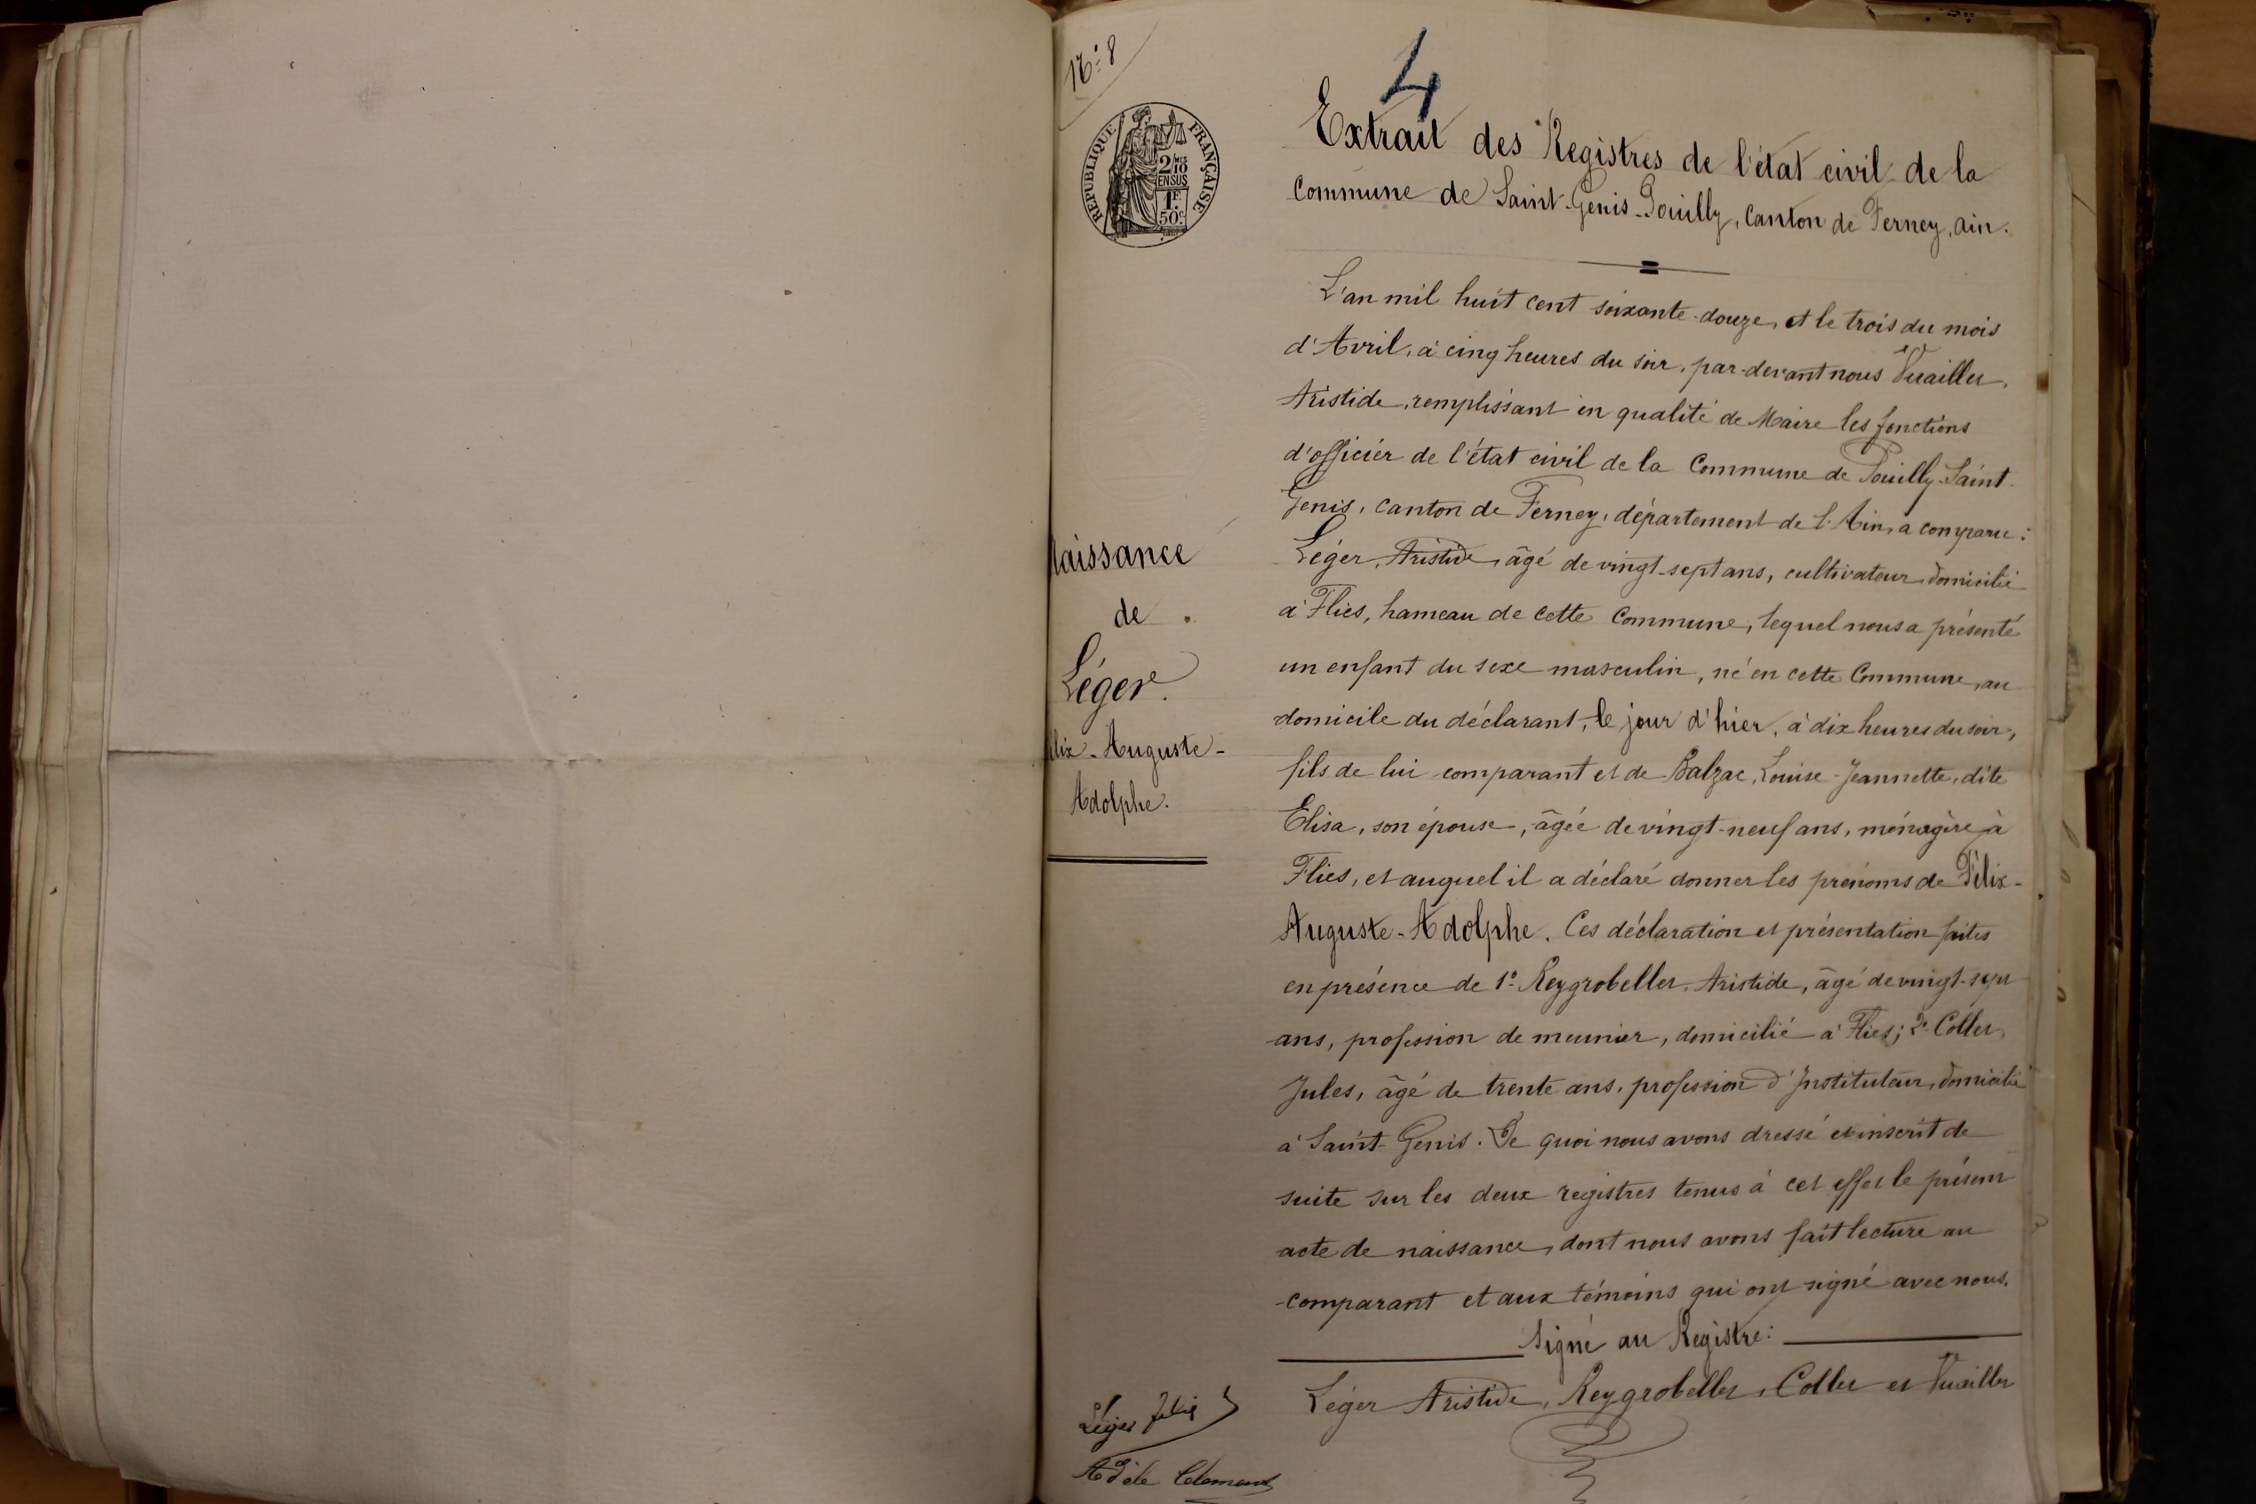 N° 8
4
RÉPUBLIQUE FRANÇAISE
2/10
EN SUS
1F.
50c
Extrait des Registres de l'état civil de la
Commune de Saint-Genis-Pouilly, Canton de Ferney, Ain.
L'an mil huit cent soixante-douze, et le trois du mois
d'Avril, à cinq heures du soir, par-devant nous Vuaillet,
Aristide, remplissant en qualité de Maire les fonctions
d'officier de l'état civil de la Commune de Pouilly-Saint-
Genis, canton de Ferney, département de l'Ain, a comparu :
Léger, Aristide, âgé de vingt-sept ans, cultivateur domicilié
à Flies, hameau de cette Commune, lequel nous a présenté
un enfant du sexe masculin, né en cette Commune, au
domicile du déclarant, le jour d'hier, à dix heures du soir,
fils de lui comparant et de Balzac, Louise-Jeannette, dite
Elisa, son épouse, âgée de vingt-neuf ans, ménagère à
Flies, et auquel il a déclaré donner les prénoms de Félix-
Auguste-Adolphe. Ces déclaration et présentation faites
en présence de 1° Reygrobellet, Aristide, âgé de vingt-sept
ans, profession de meunier, domicilié à Flies; 2° Collet,
Jules, âgé de trente ans, profession d'Instituteur, domicilié
à Saint-Genis. De quoi nous avons dressé et inscrit de
suite sur les deux registres tenus à cet effet le présent
acte de naissance, dont nous avons fait lecture au
comparant et aux témoins qui ont signé avec nous.
Signé au Registre :
Léger Aristide, Reygrobellet, Collet et Vuaillet
Naissance
de
Léger.
élix-Auguste-
Adolphe.
Léger Félix
Adèle Clément